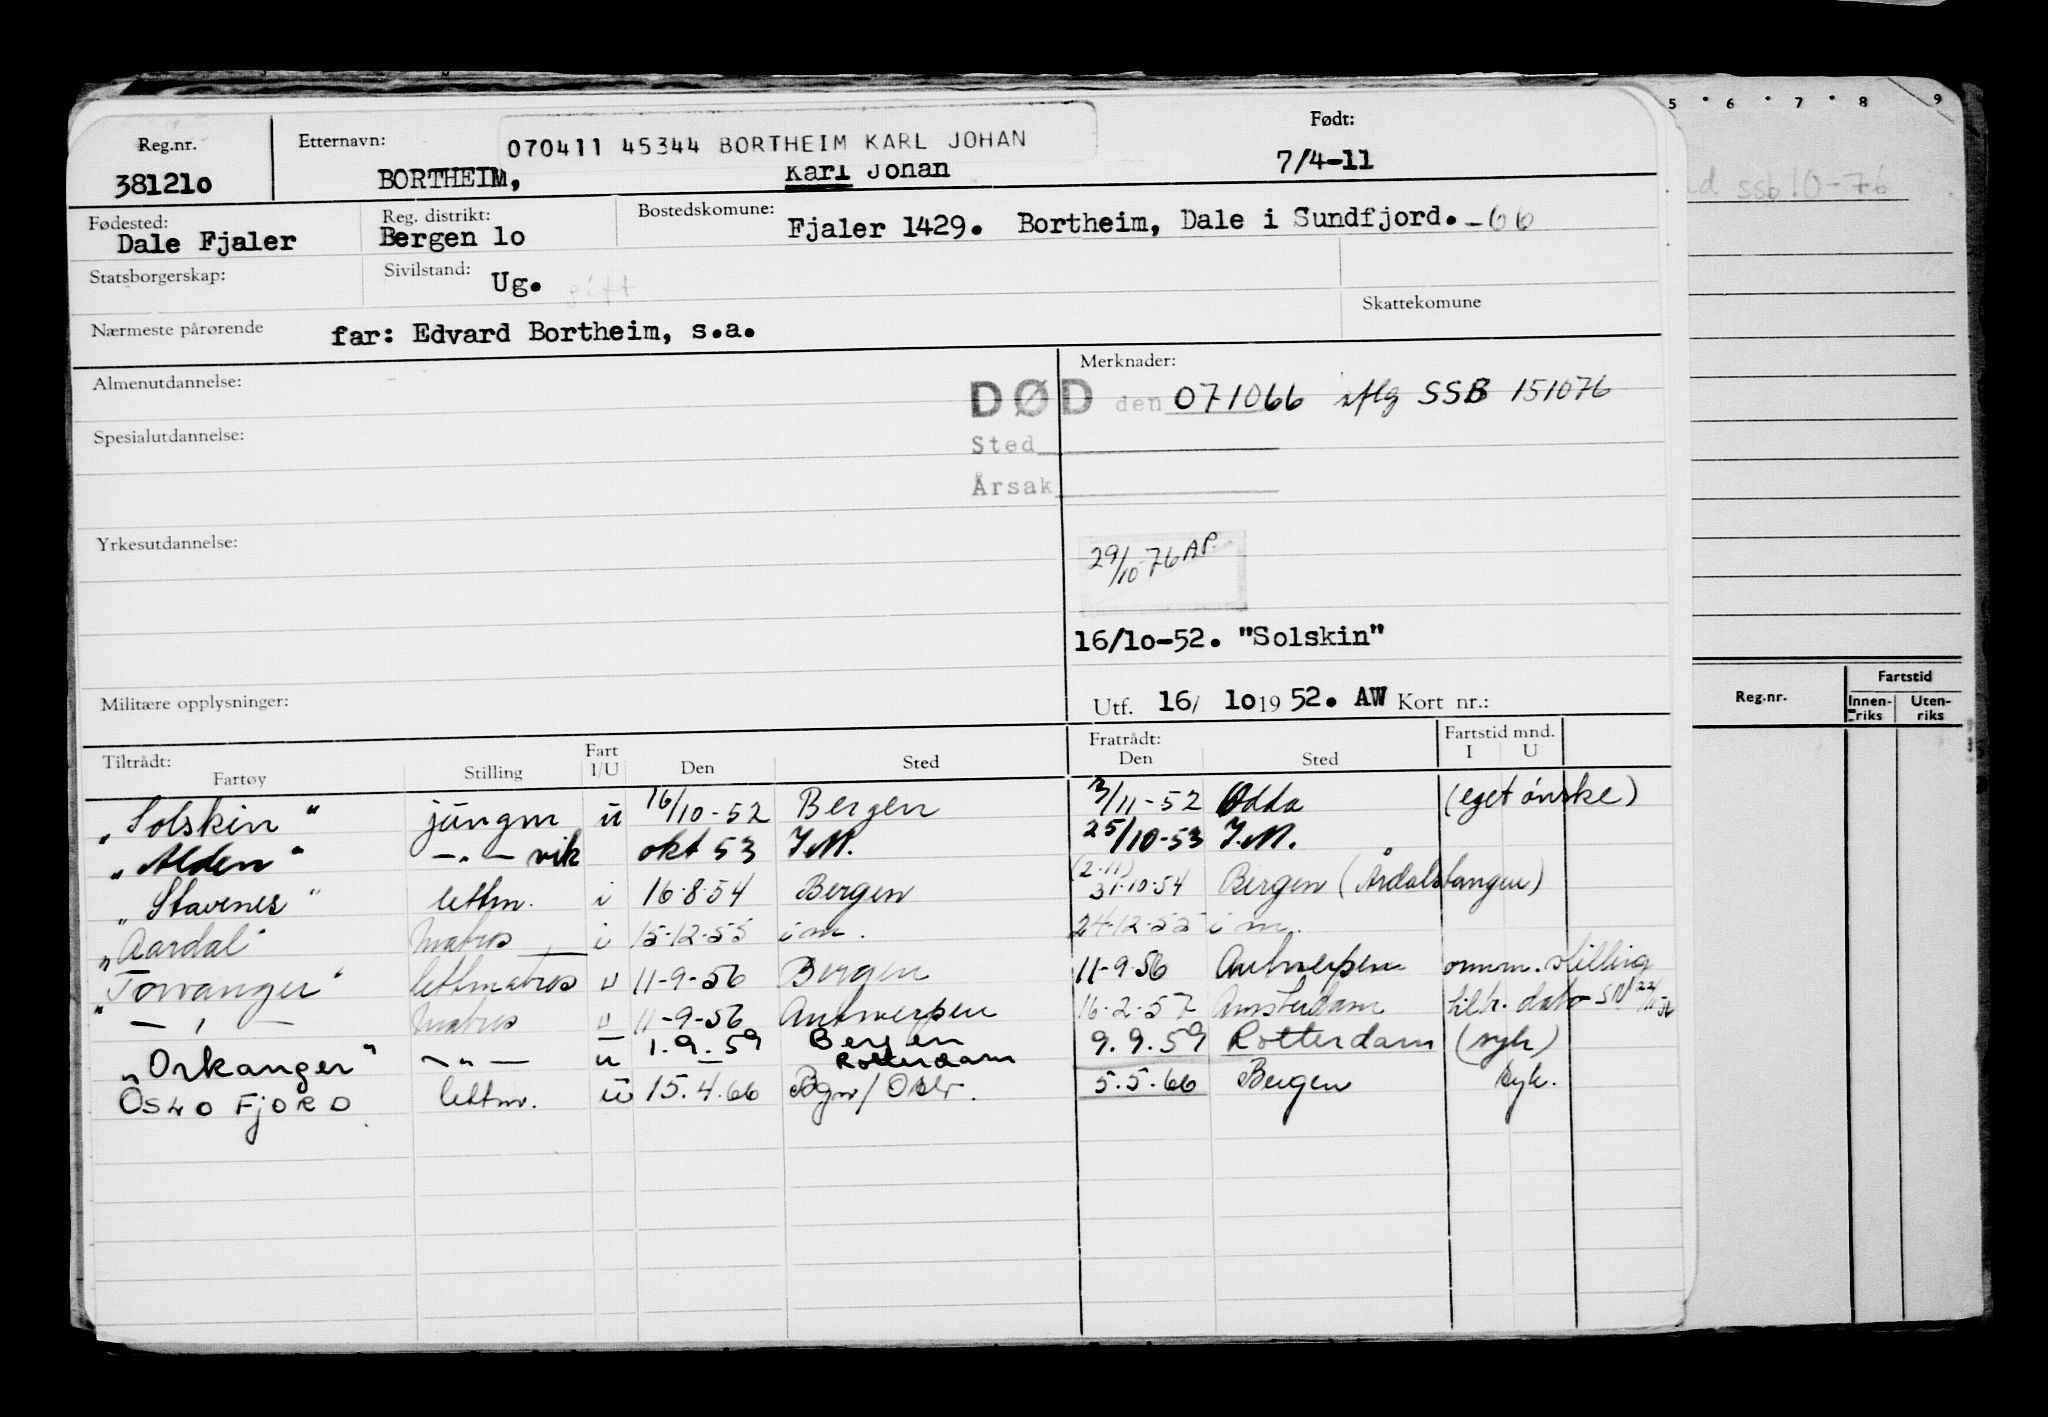 5 · 6 · 7 · 8 9
ssb 10-76
Reg.nr. Etternavn: 070411 45344 BORTHEIM KARL JOHAN Født:
381210 BORTHEIM, Karl Johan 7/4-11
Fødested: Reg. distrikt: Bostedskomune:
Dale Fjaler Bergen 10 Fjaler 1429. Bortheim, Dale i Sundfjord. -66
Statsborgerskap: Sivilstand: Ug. gift
Skattekomune
Nærmeste pårørende far: Edvard Bortheim, s.a.
Almenutdannelse: Merknader:
DØD den 071066 iflg SSB 151076
Spesialutdannelse: Sted
Årsak
Yrkesutdannelse: 29/10-76 AP.
16/10-52. "Solskin"
Militære opplysninger: Utf. 16/ 10 19 52. AW Kort nr.:
Reg.nr. Fartstid
Innen-riks Uten-riks
Tiltrådt: Fart Fratrådt: Fartstid mnd.
Fartøy Stilling I/U Den Sted Den Sted I U
"Solskin" jungm u 16/10-52 Bergen 3/11-52 Odda (eget ønske)
"Alden" —"— vik okt 53 I.M. 25/10-53 I.M.
(2.11)
"Stavenes" lettm. i 16.8.54 Bergen 31.10.54 Bergen (Årdalstangen)
"Aardal" Matros i 15-12-55 i m. 24-12-55 i m.
"Torvanger" lettmatros u 11-9-56 Bergen 11-9-56 Antwerpen omm. stilling
" — " — Matros u 11-9-56 Antwerpen 16-2-57 Amsterdam tiltr. dato
"Orkanger" —"— u 1.9.59 Bergen Rotterdam 9.9.59 Rotterdam (syk)
OSLOFJORD lettm. u 15.4.66 Bgn/Oslo. 5.5.66 Bergen syk.